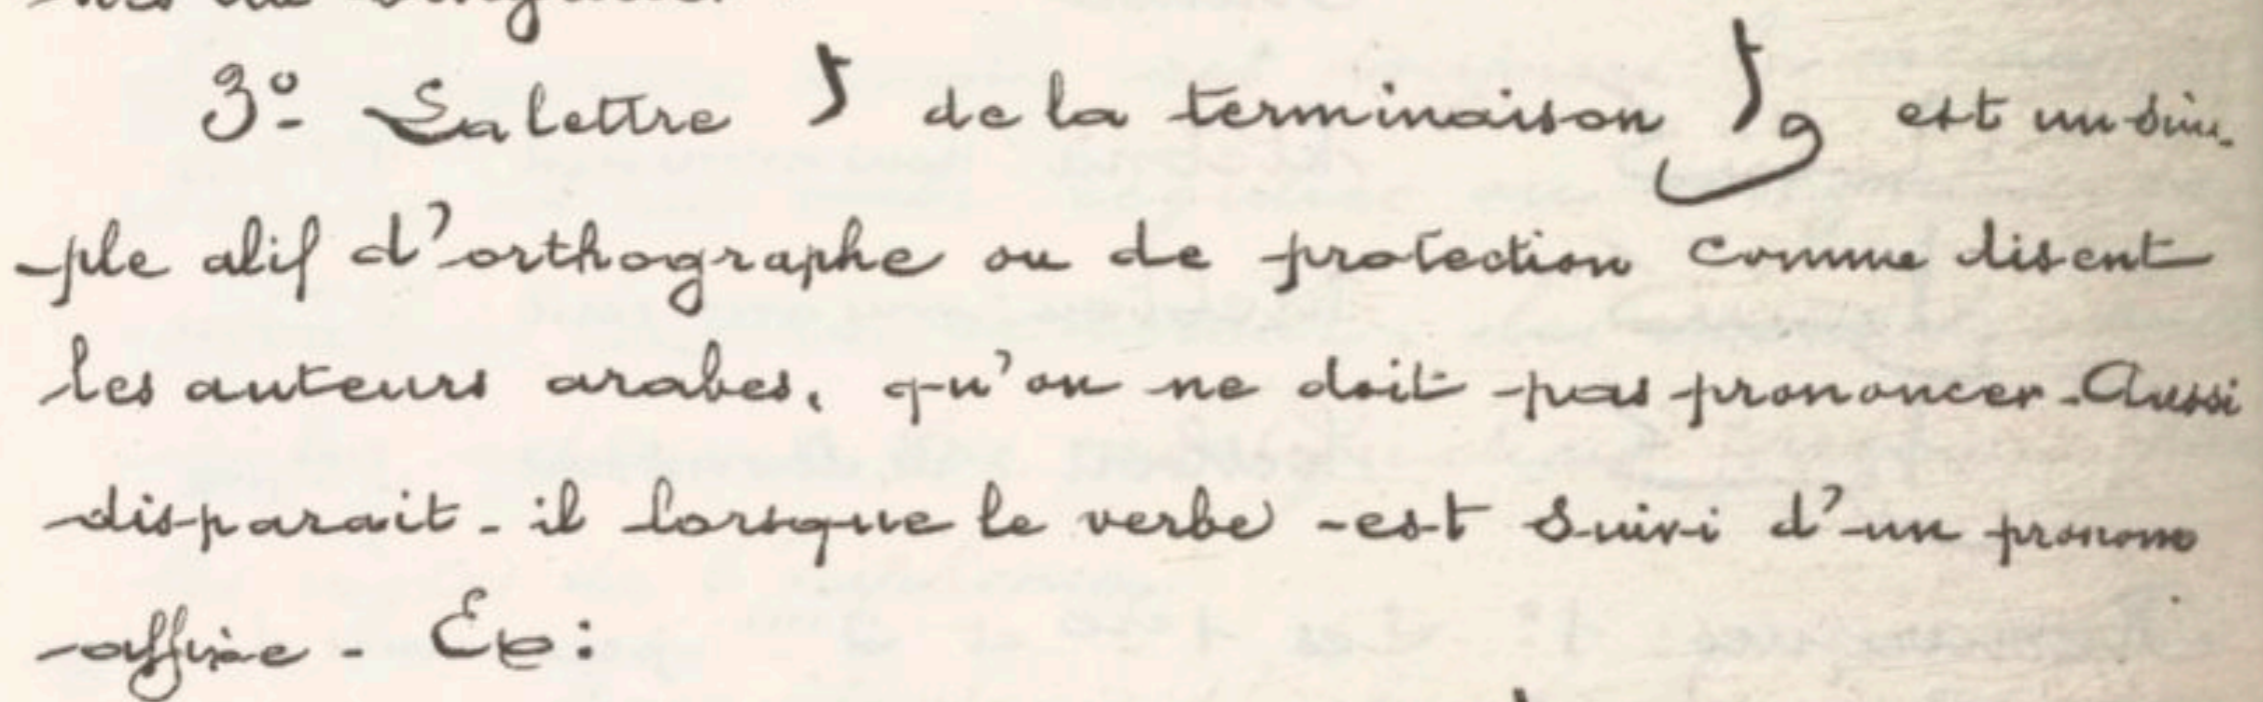 3º La lettre ا de la terminaison وا est un sim-
ple alif d'orthographe ou de protection comme disent
les auteurs arabes, qu'on ne doit pas prononcer. Aussi
disparait-il lorsque le verbe est suivi d'un pronom
affixe. Ex: